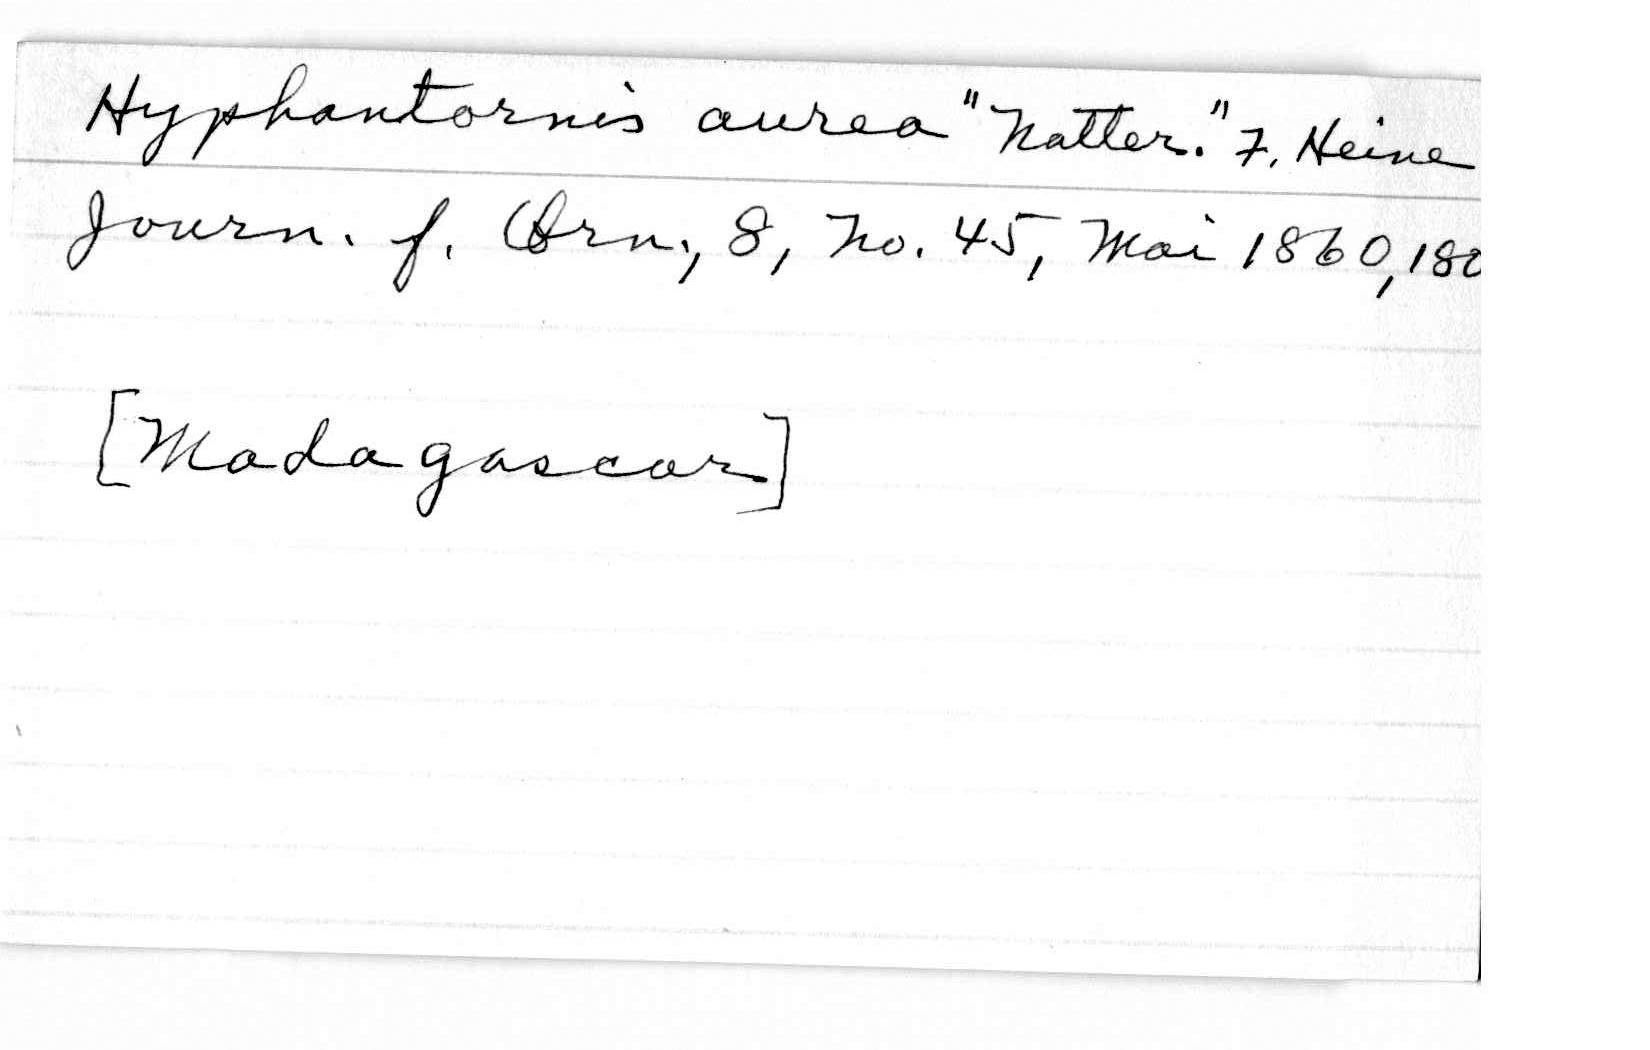 Hyphantornis aurea "Natter." F. Heine
Journ. f. Orn., 8, no. 45, Mai 1860, 180
[Madagascar]